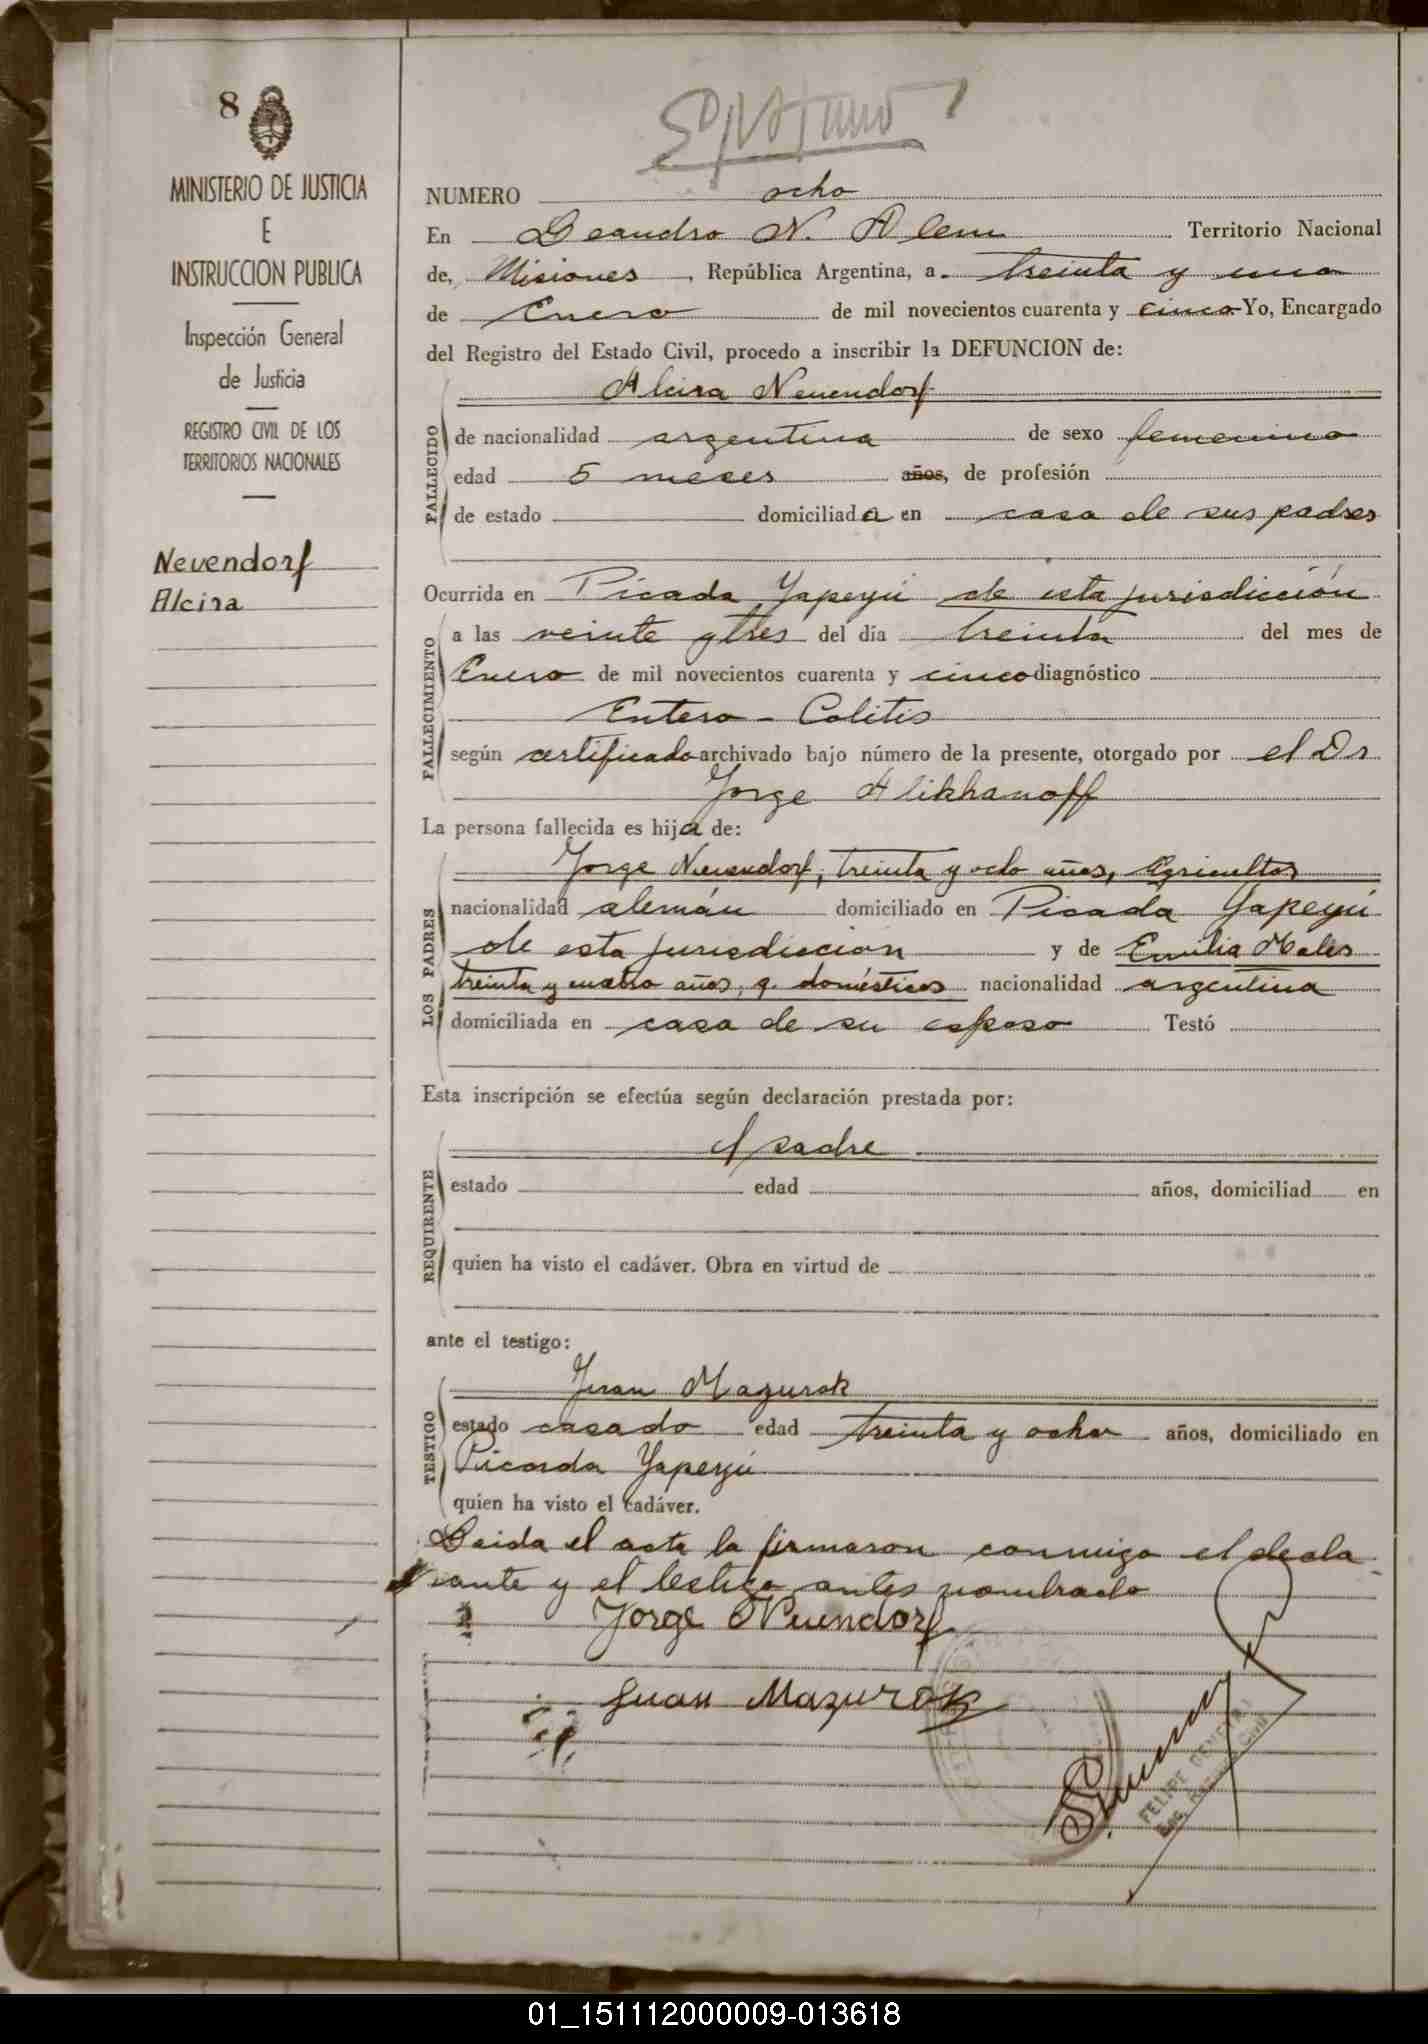 8
MINISTERIO DE JUSTICIA
E
INSTRUCCION PUBLICA
Inspección General
de Justicia
REGISTRO CIVIL DE LOS
TERRITORIOS NACIONALES
Neuendorf
Alcira
NUMERO ocho
En Leandro N. Alem Territorio Nacional
de, Misiones, República Argentina, a treinta y uno
de Enero de mil novecientos cuarenta y cinco Yo, Encargado
del Registro del Estado Civil, procedo a inscribir la DEFUNCION de:
Alcira Neuendorf
FALLECIDO
de nacionalidad argentina de sexo femenino
edad 5 meses años, de profesión
de estado domiciliada en casa de sus padres
Ocurrida en Picada Yapeyú de esta jurisdicción
FALLECIMIENTO
a las veinte y tres del día treinta del mes de
Enero de mil novecientos cuarenta y cinco diagnóstico
Entero - Colitis
según certificado archivado bajo número de la presente, otorgado por el Dr
Jorge Alikhanoff
La persona fallecida es hija de:
LOS PADRES
Jorge Neuendorf, treinta y ocho años, agricultor
nacionalidad alemán domiciliado en Picada Yapeyú
de esta jurisdicción y de Emilia Males
treinta y cuatro años, q. domésticos nacionalidad argentina
domiciliada en casa de su esposo Testó
Esta inscripción se efectúa según declaración prestada por:
REQUIRENTE
el padre
estado edad años, domiciliad en
quien ha visto el cadáver. Obra en virtud de
ante el testigo:
TESTIGO
Juan Mazurok
estado casado edad treinta y ocho años, domiciliado en
Picada Yapeyú
quien ha visto el cadáver.
Leida el acta la firmaron conmigo el decla
rante y el testigo antes nombrado
Jorge Neuendorf
Juan Mazurok
FELIPE
01_151112000009-013618